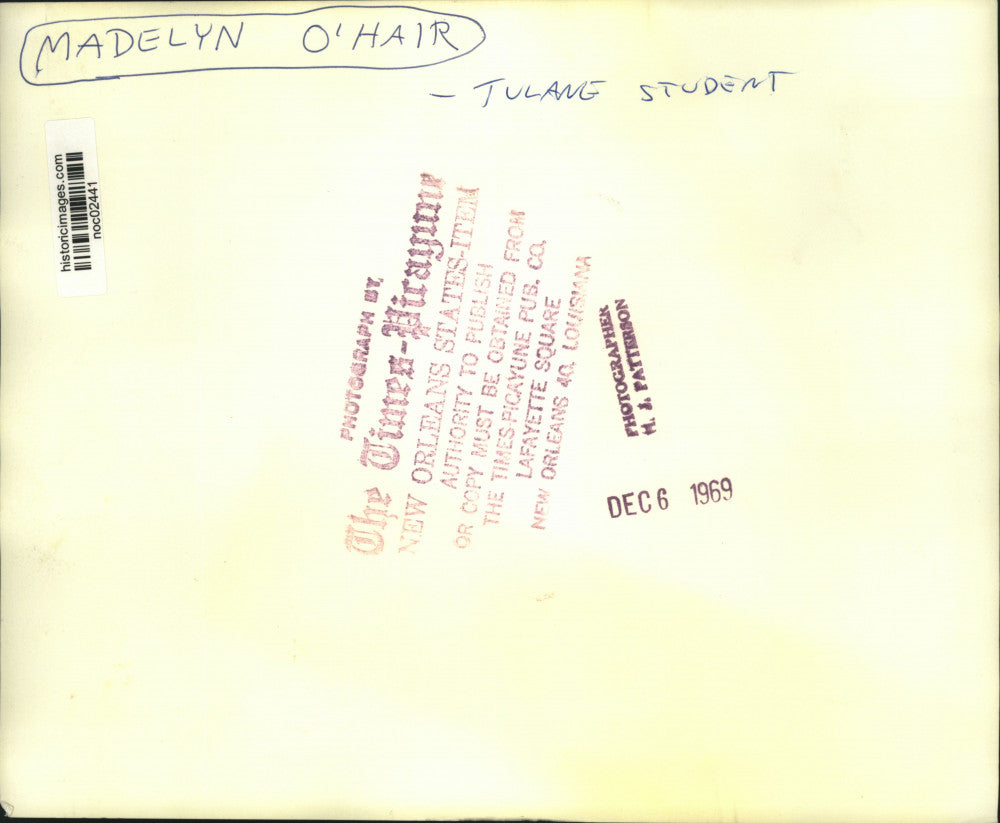 MADELYN O'HAIR
- TULANE STUDENT
historicimages.com
noc02441
PHOTOGRAPH BY
The Times-Picayune
NEW ORLEANS STATES-ITEM
AUTHORITY TO PUBLISH
OR COPY MUST BE OBTAINED FROM
THE TIMES PICAYUNE PUB. CO.
LAFAYETTE SQUARE
NEW ORLEANS 40, LOUISIANA
PHOTOGRAPHER
H. J. PATTERSON
DEC 6 1969